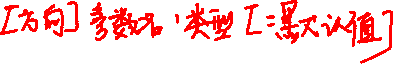 [方向] 参数名:类型 [:=默认值]